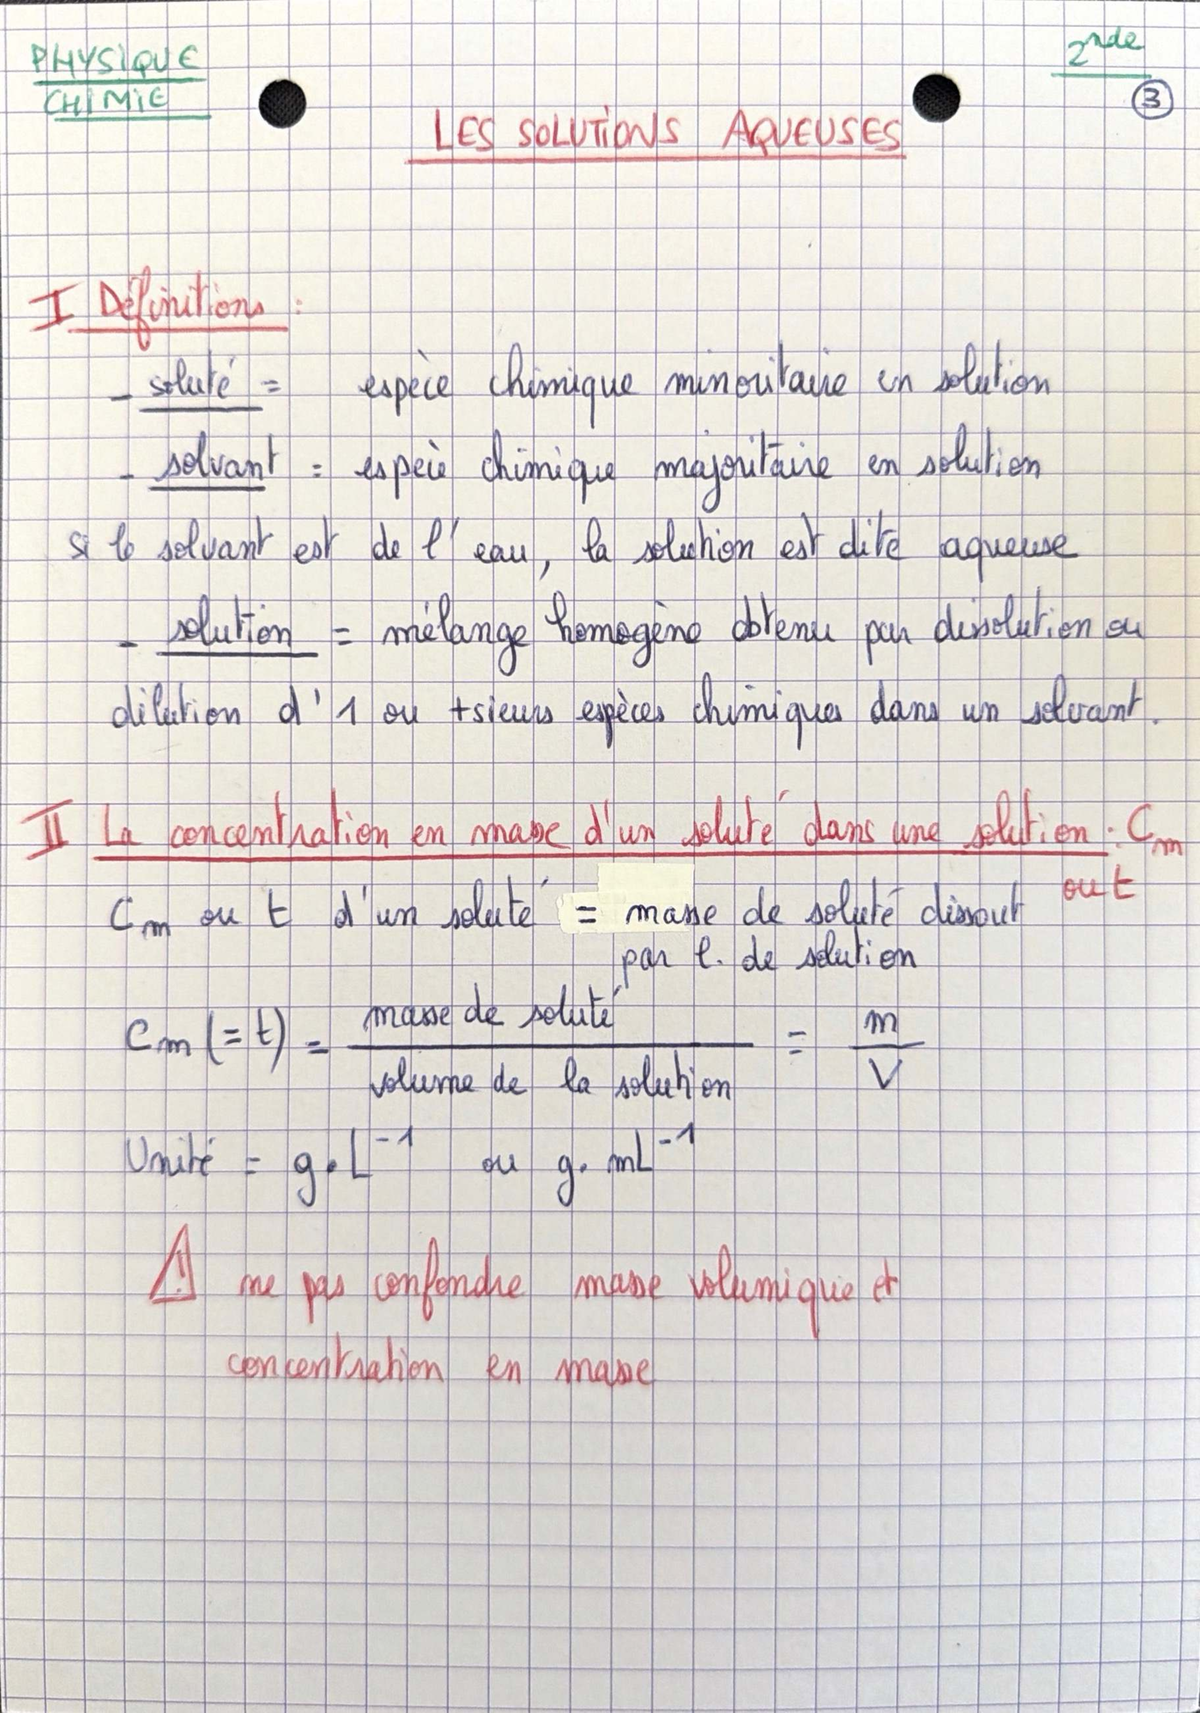 PHYSIQUE
CHIMIE
2nde
3
LES SOLUTIONS AQUEUSES
I Définitions :
- soluté = espèce chimique minoritaire en solution
- solvant = espèce chimique majoritaire en solution
si le solvant est de l'eau, la solution est dite aqueuse
- solution = mélange homogène obtenu par dissolution ou
dilution d'1 ou +sieurs espèces chimiques dans un solvant.
II La concentration en masse d'un soluté dans une solution : Cm
ou t
Cm ou t d'un soluté = masse de soluté dissout
par l. de solution
Cm (= t) = masse de soluté / volume de la solution = m / V
Unité = g.L⁻¹ ou g.mL⁻¹
⚠ ne pas confondre masse volumique et
concentration en masse